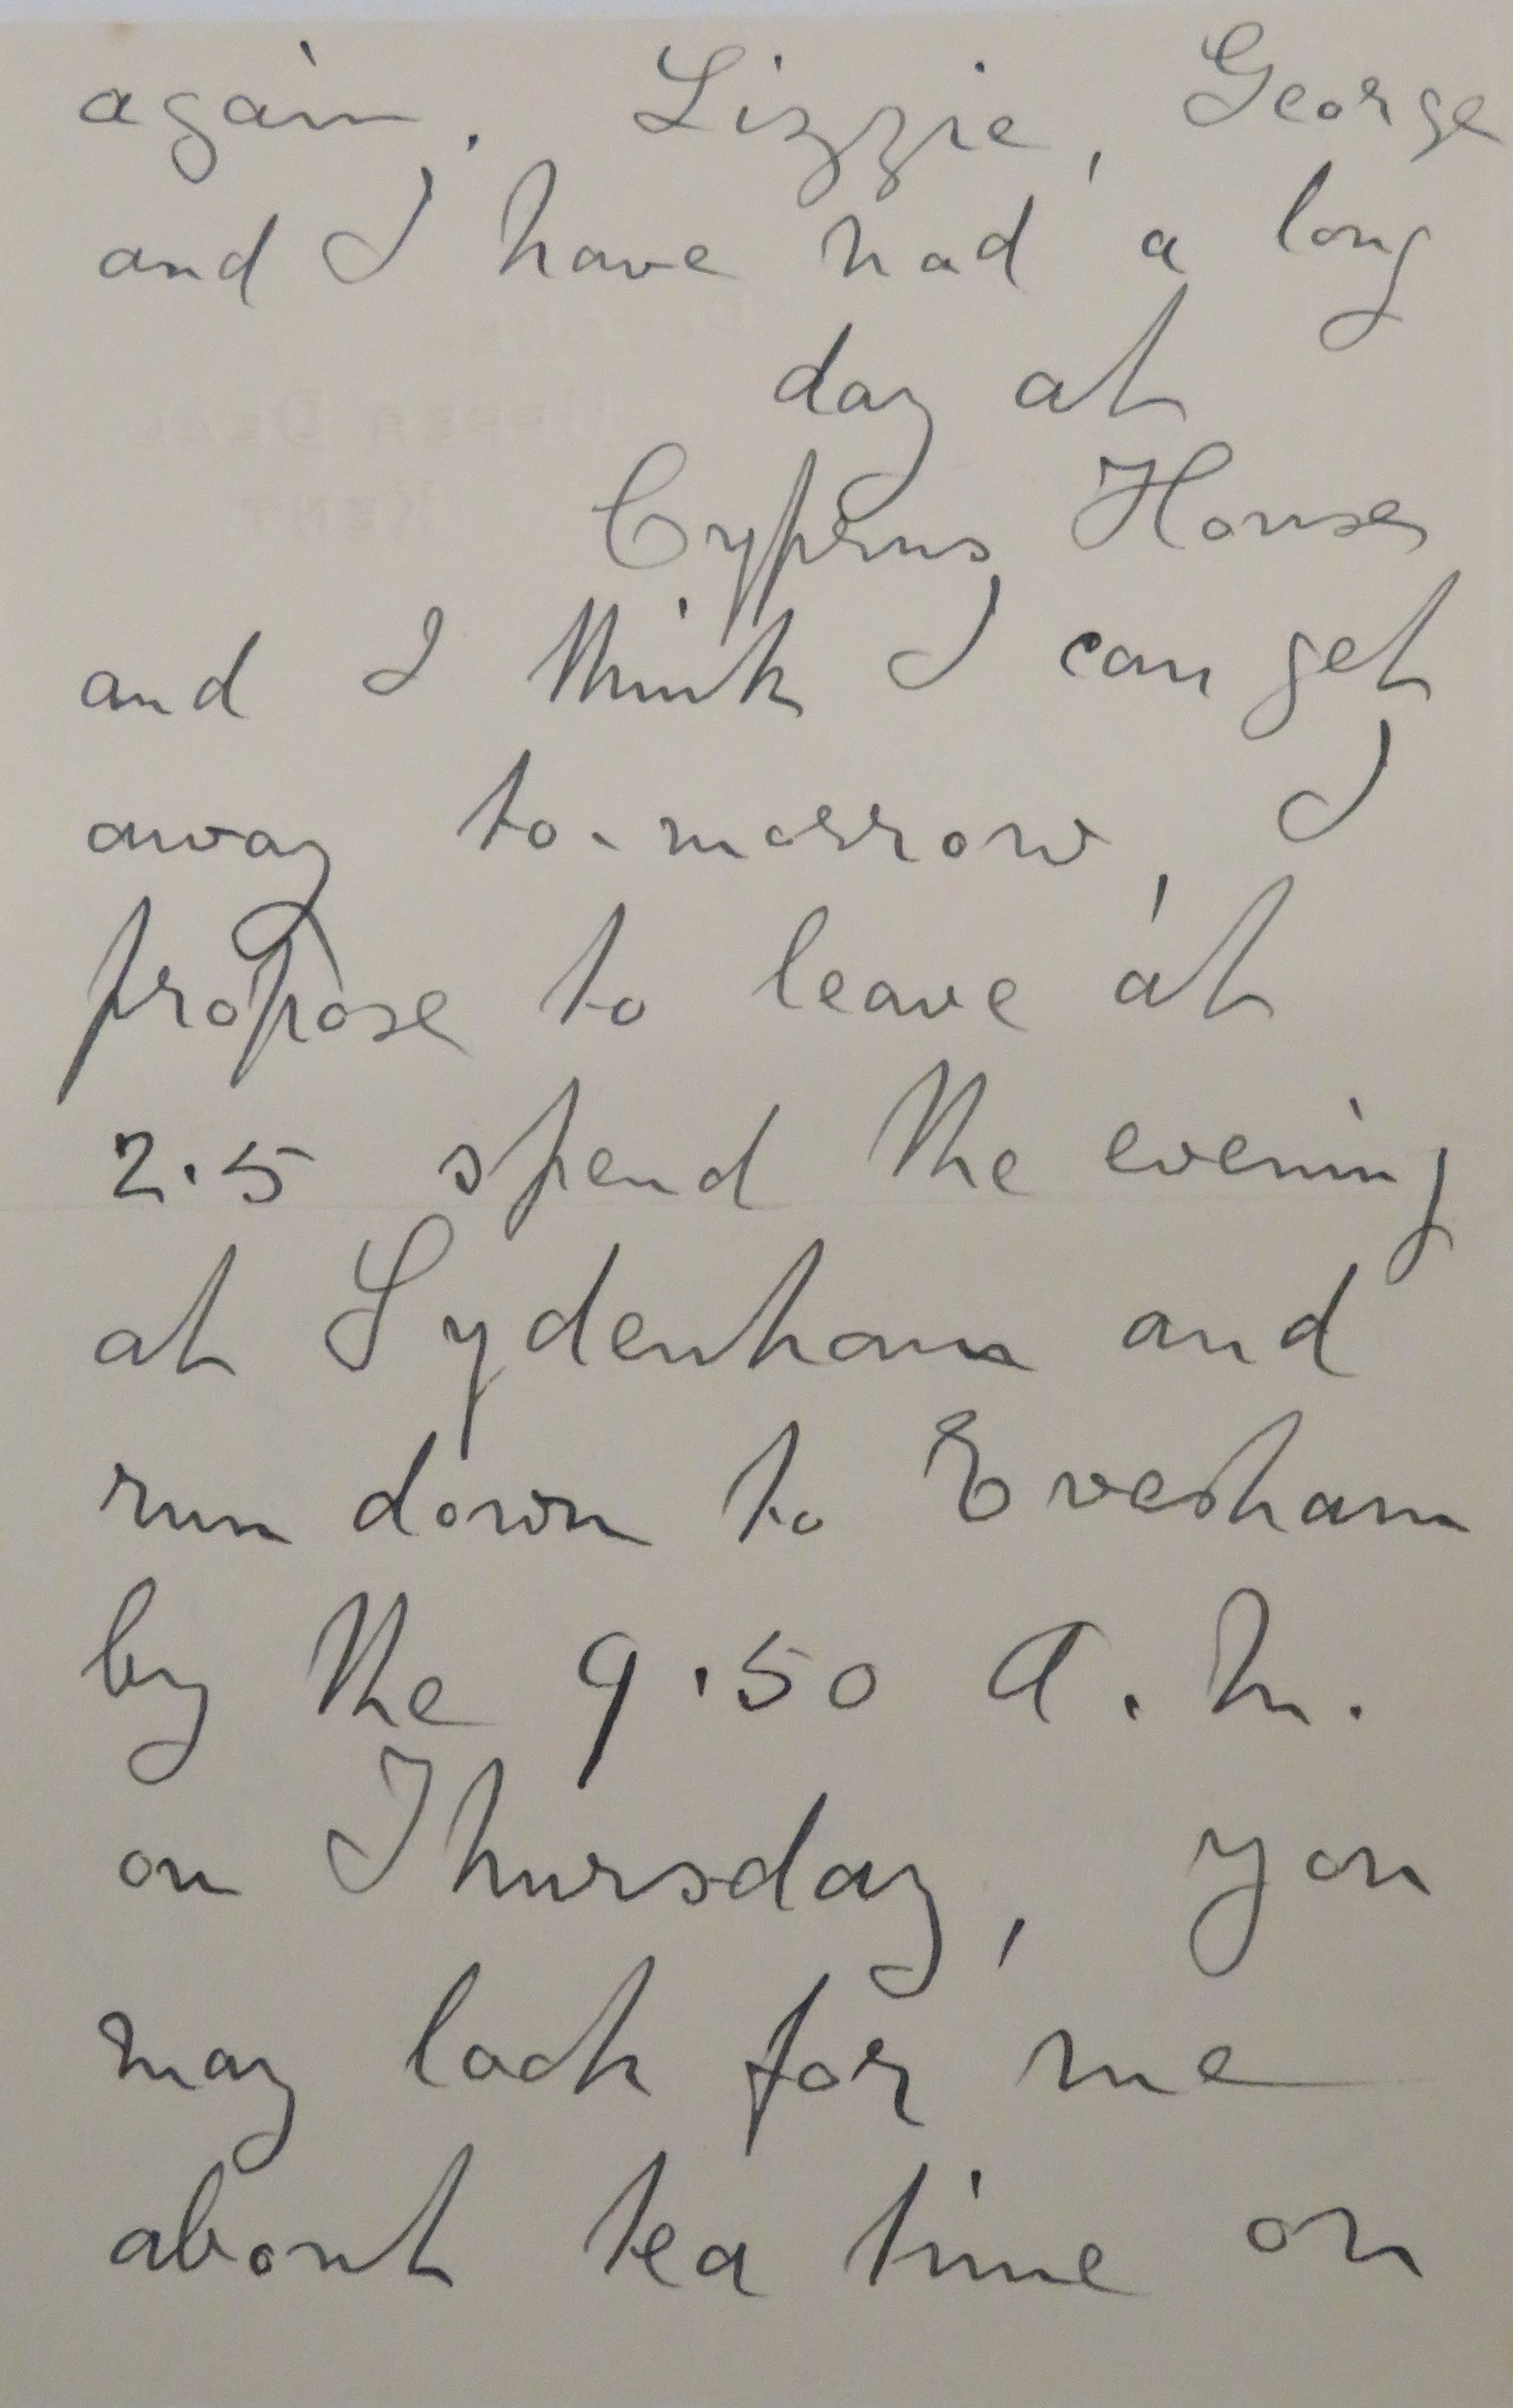 again. Lizzie, George
and I have had a long
day at
Cyprus House
and I think I can get
away to-morrow, I
propose to leave at
2.5 spend the evening
at Sydenham and
run down to Evesham
by the 9.50 A.M.
on Thursday, you
may look for me
about tea time on